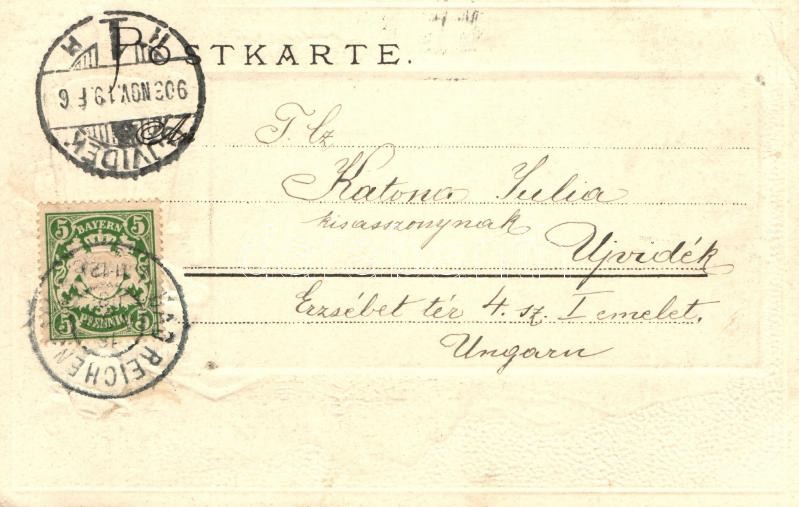 POSTKARTE.
UJVIDEK
903 NOV. 19. F 6
An
T. Cz
Katona Julia
kisasszonynak
Ujvidék
Erzsébet tér 4. sz. I emelet.
Ungarn
5 BAYERN 5
5 PFENNIG 5
BAD REICHEN